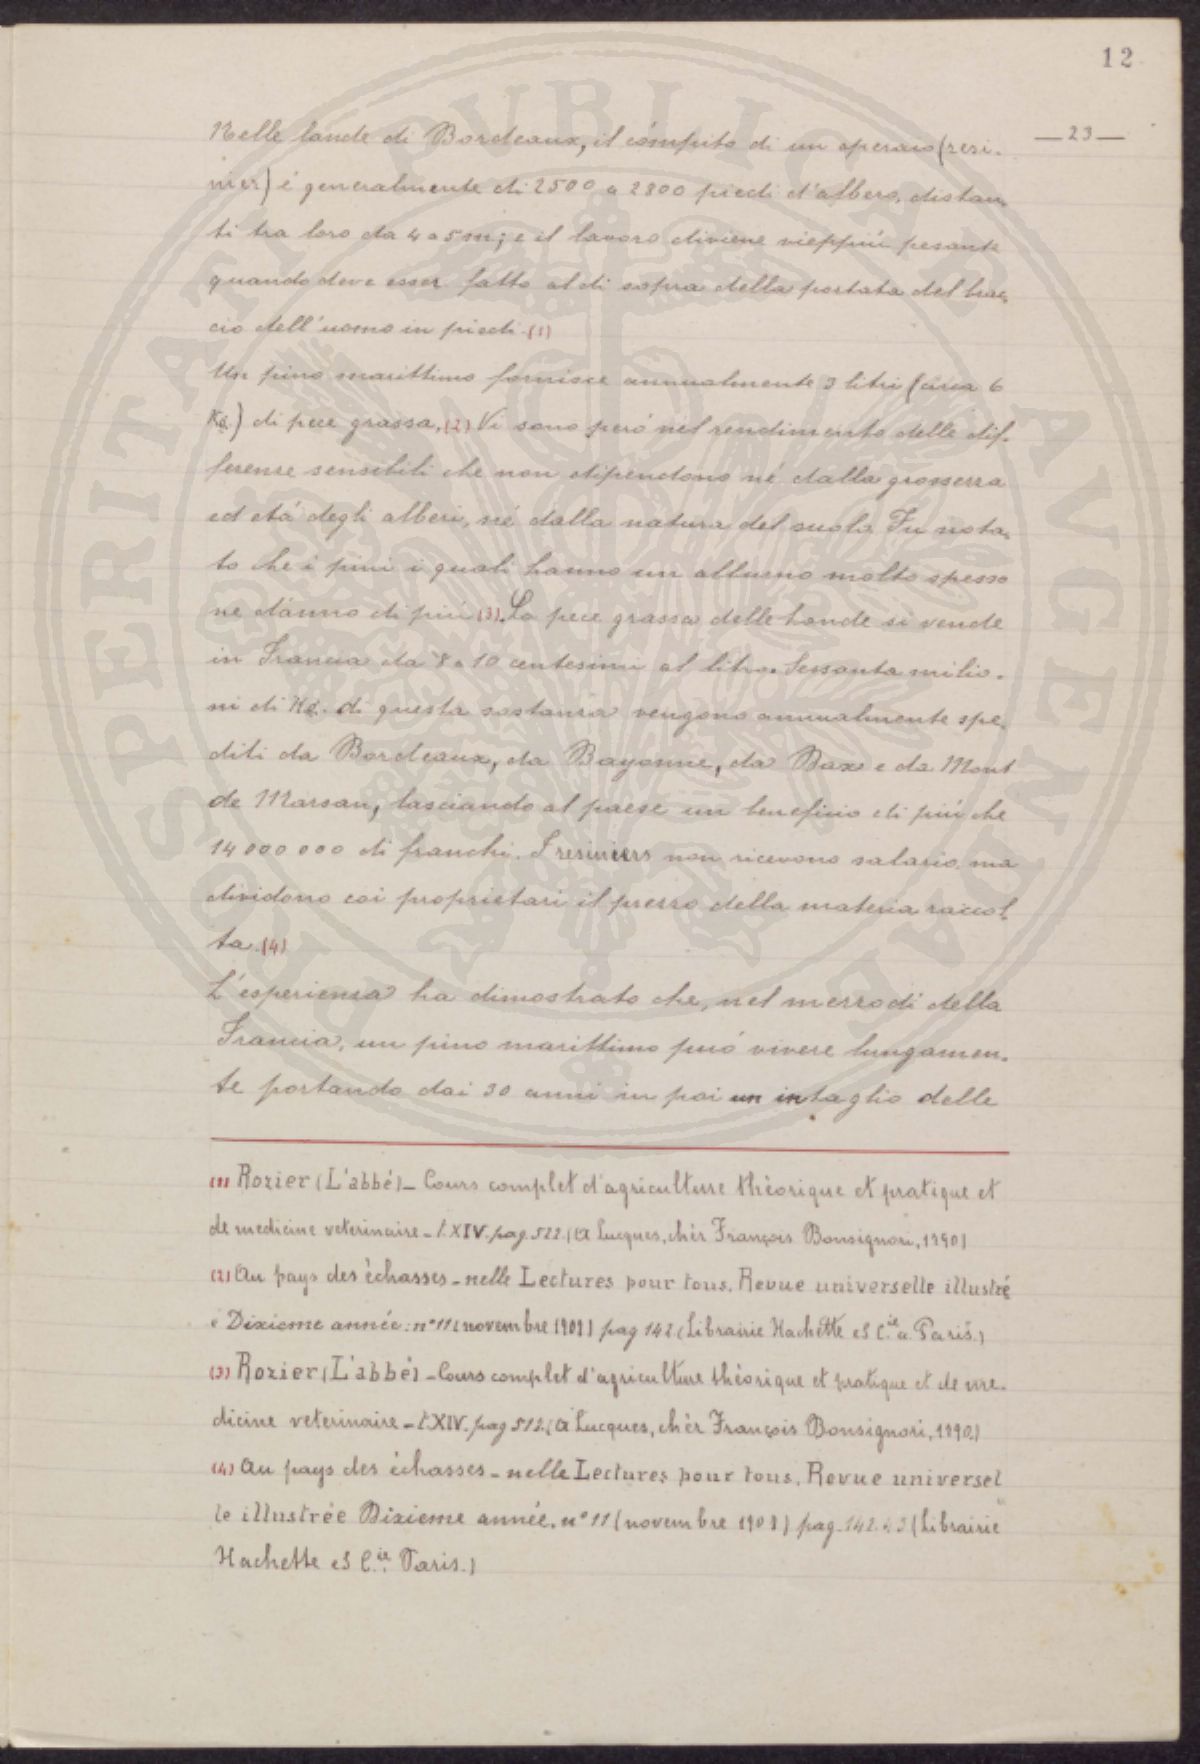 12
—23—
Nelle lande di Bordeaux, il cómpito di un operaio (resi-
nier) è generalmente di 2500 a 2800 piedi d'albero, distan-
ti tra loro da 4 a 5 m; e il lavoro diviene vieppiú pesante
quando deve esser fatto al di sopra della portata del brac-
cio dell'uomo in piedi. (1)
Un pino marittimo fornisce annualmente 3 litri (circa 6
Kg.) di pece grassa. (2) Vi sono peró nel rendimento delle dif-
ferenze sensibili che non dipendono né dalla grossezza
ed etá degli alberi, né dalla natura del suolo. Fu nota-
to che i pini i quali hanno un alburno molto spesso
ne dánno di piú (3). La pece grassa delle Lande si vende
in Francia da 8 a 10 centesimi al litro. Sessanta milio-
ni di Kg. di questa sostanza vengono annualmente spe-
diti da Bordeaux, da Bayonne, da Dax e da Mont
de Marsan, lasciando al paese un beneficio di piú che
14 000 000 di franchi. I resiniers non ricevono salario, ma
dividono coi proprietari il prezzo della materia raccol-
ta. (4)
L'esperienza ha dimostrato che, nel mezzodí della
Francia, un pino marittimo puó vivere lungamen-
te portando dai 30 anni in poi un intaglio delle
(1) Rozier (L'abbé) - Cours complet d'agriculture thèorique et pratique et
de medicine veterinaire - t. XIV. pag. 522. (a Lucques, chèr François Bonsignori,
(2) Au pays des èchasses - nelle Lectures pour tous. Revue universelle illustré
e Dixieme année: n° 11 (novembre pag 142 (Librairie Hachette eS C.ie a Paris.)
(3) Rozier (L'abbé) - Cours complet d'agriculture thèorique et pratique et de me-
dicine veterinaire - t. XIV. pag 512. (a Lucques, chèr François Bonsignori,
(4) Au pays des èchasses - nelle Lectures pour tous. Revue universel
le illustrée Dixieme année. n° 11 (novembre pag. 142.43 (Librairie
Hachette eS C.ie Paris.)
PROSPERITATI PVBLICAE AVGENDAE